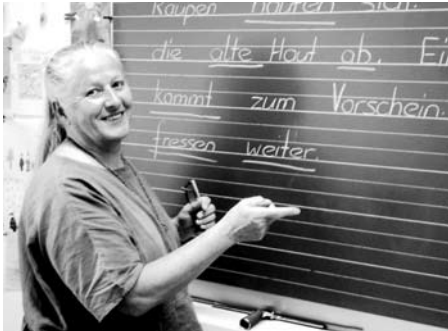 Raupen häuten sich.
die alte Haut ab. Ei
kommt zum Vorschein.
fressen weiter.